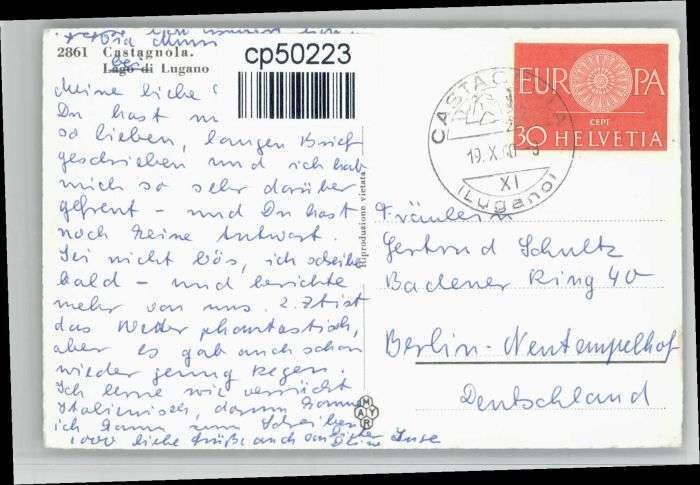 2861 Castagnola.
Lago di Lugano
cp50223
Meine liebe
Du hast
so lieben, langen Brief
geschrieben und ich hab
mich so sehr darüber
gefreut – und Du hast
noch keine Antwort.
Sei nicht bös, ich schreibe
bald – und berichte
mehr von uns. z.Zt ist
das Wetter phantastisch,
aber es gab auch schon
wieder genug Regen.
Ich lerne wie verrückt
Italienisch, darum komme
ich kaum zum Schreiben
1000 liebe Grüße auch an Deine Inse
Riproduzione vietata
MAYR
EUROPA
CEPT
30 HELVETIA
CASTAGNOLA
19.X.60-9
XI
(Lugano)
Fräulein
Gertrud Schultz
Badener Ring 40
Berlin-Neutempelhof
Deutschland